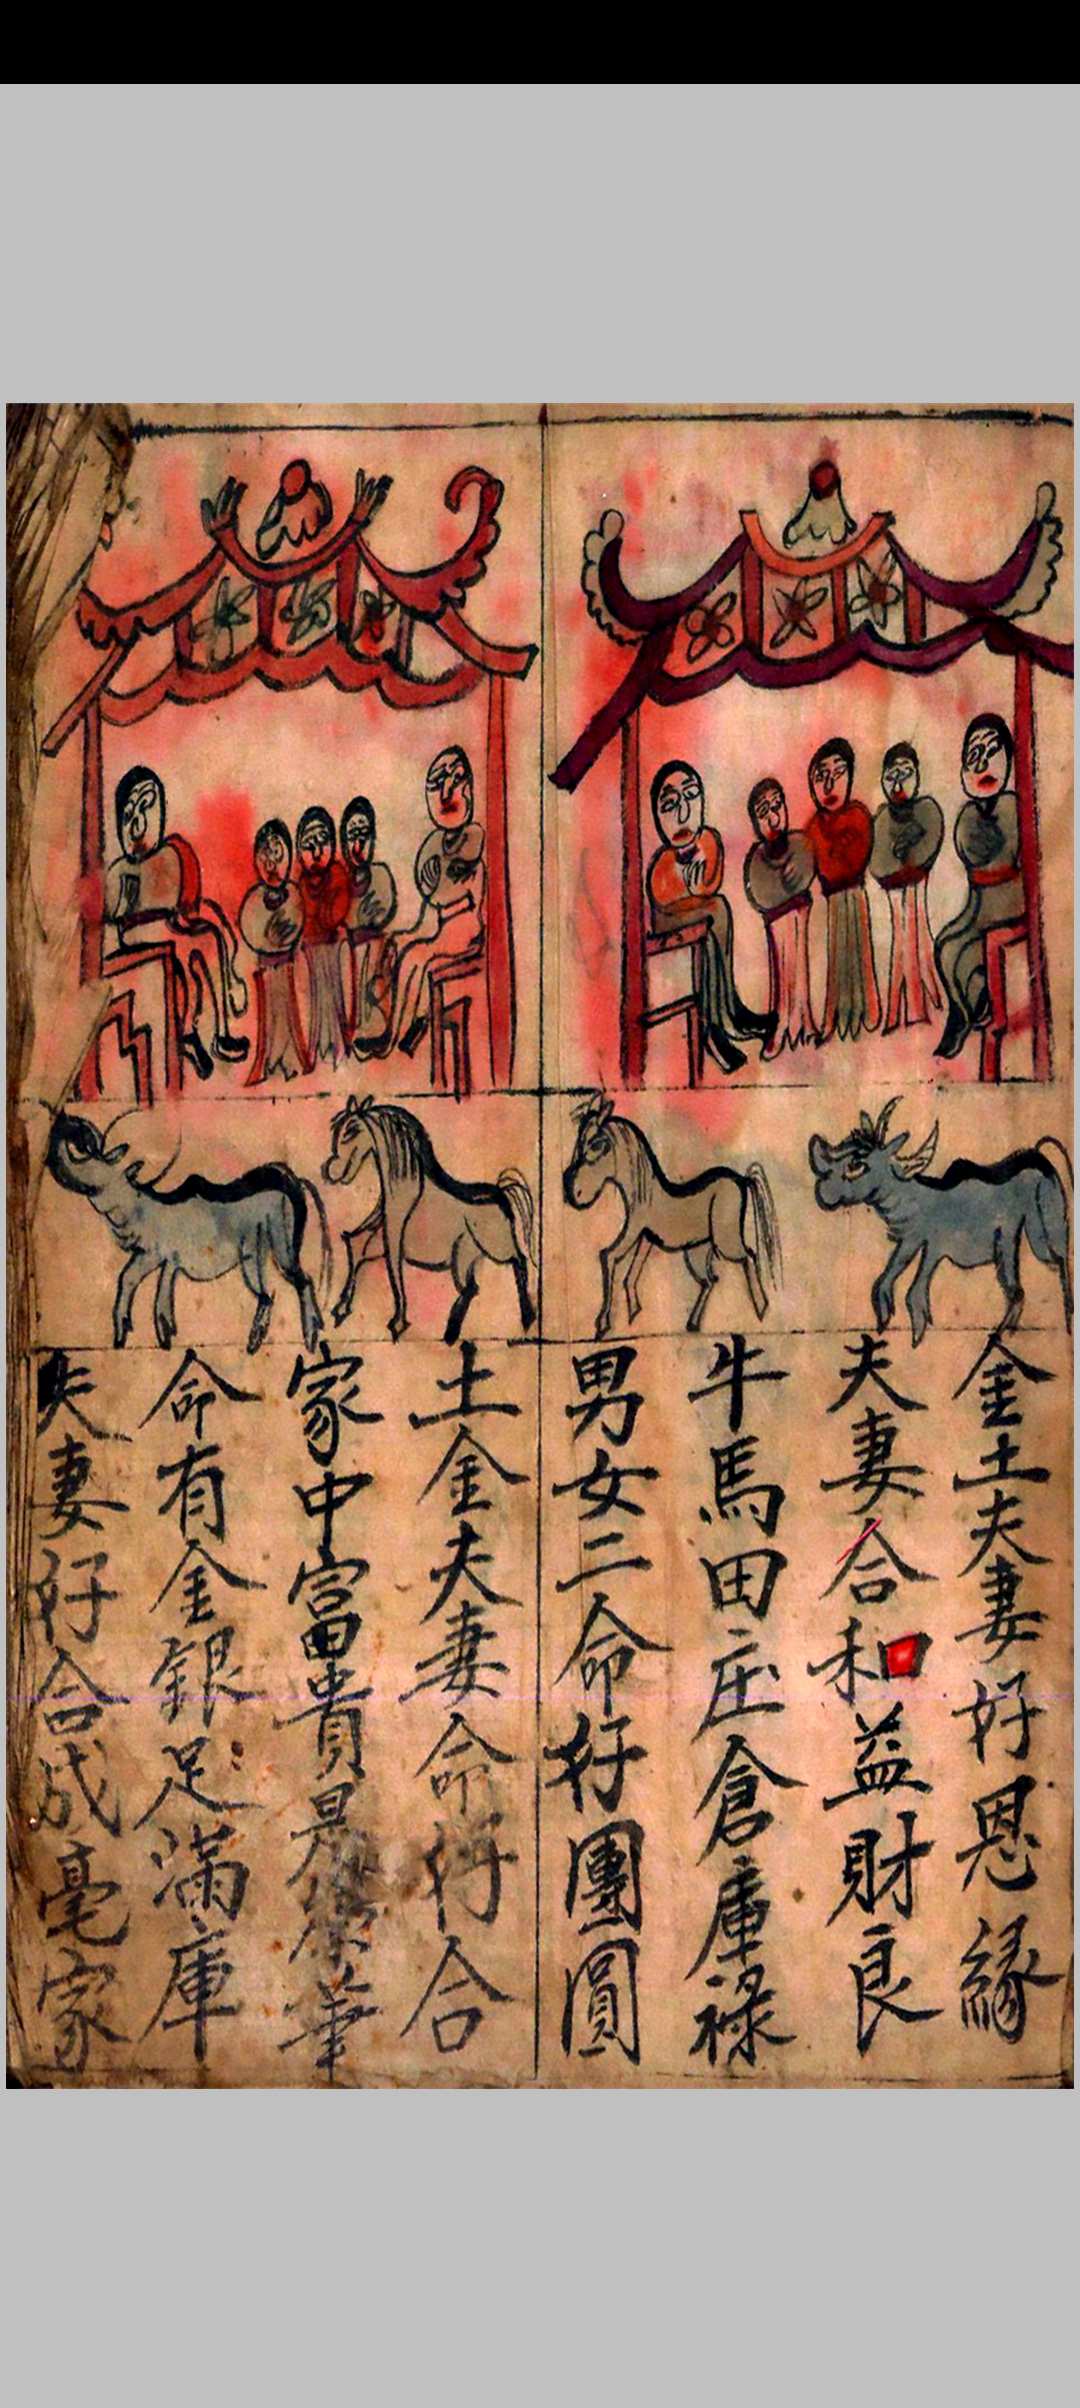 金土夫妻好恩緣
夫妻合和益財良
牛馬田庄倉庫祿
男女二命好團圓
土金夫妻命合
家中富貴是榮華
命有金銀足滿庫
夫妻好合成毫家